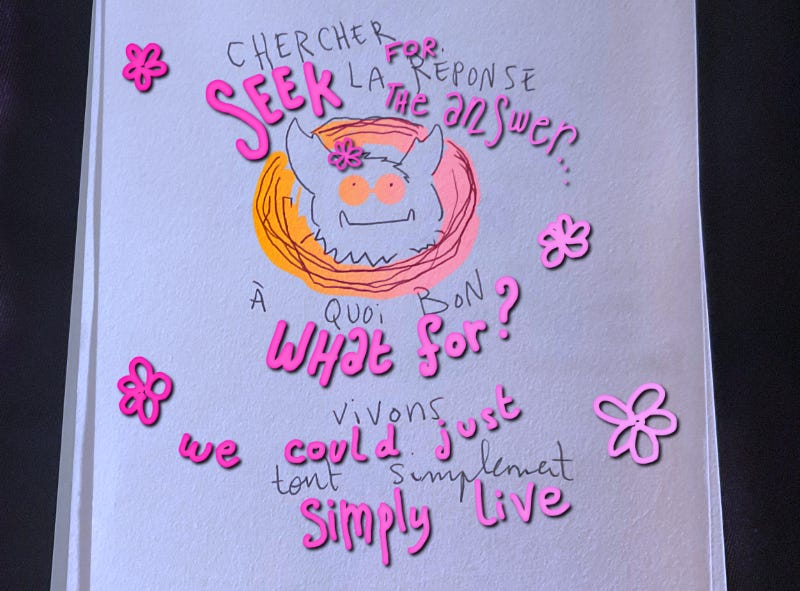 CHERCHER
FOR
LA REPONSE
SEEK
THE answer...
À QUOI BON
WHat for?
vivons
we could just
tout simplement
simply live